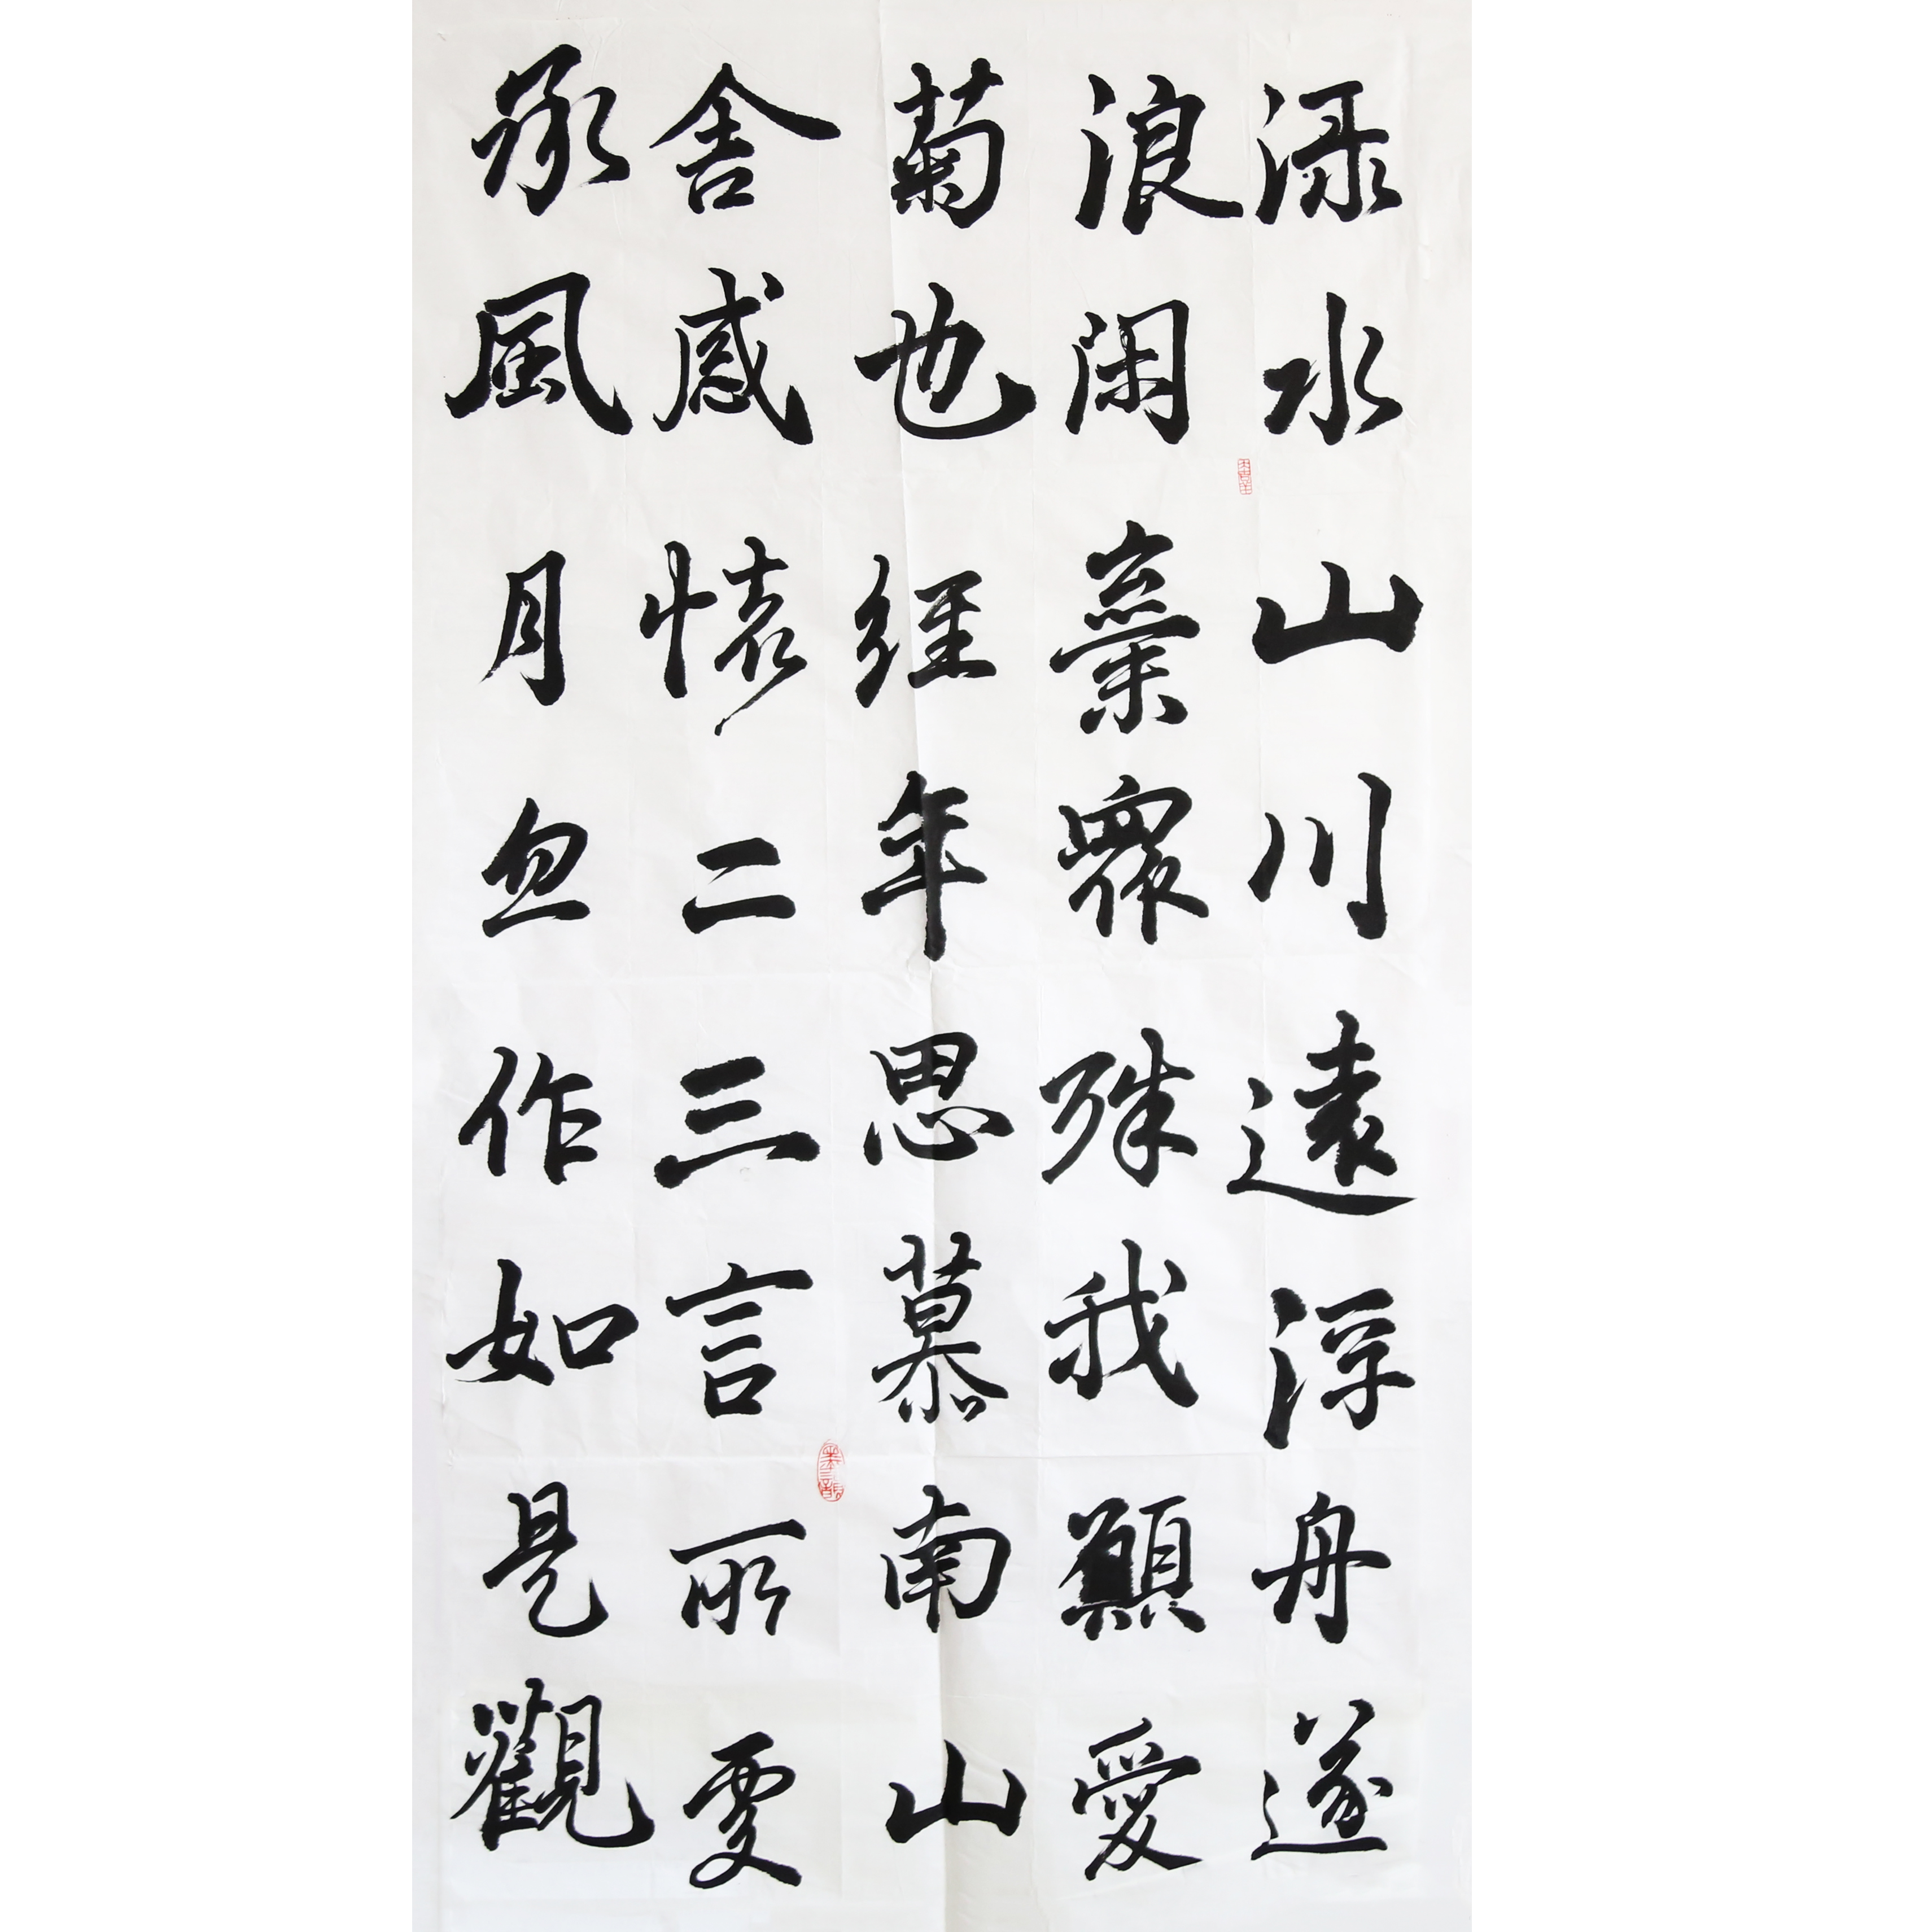 渌水山川遠浮舟遂
浪闲棄衆殊我願愛
菊也经年思慕南山
舍感懐二三言所
承風月忽作如是觀